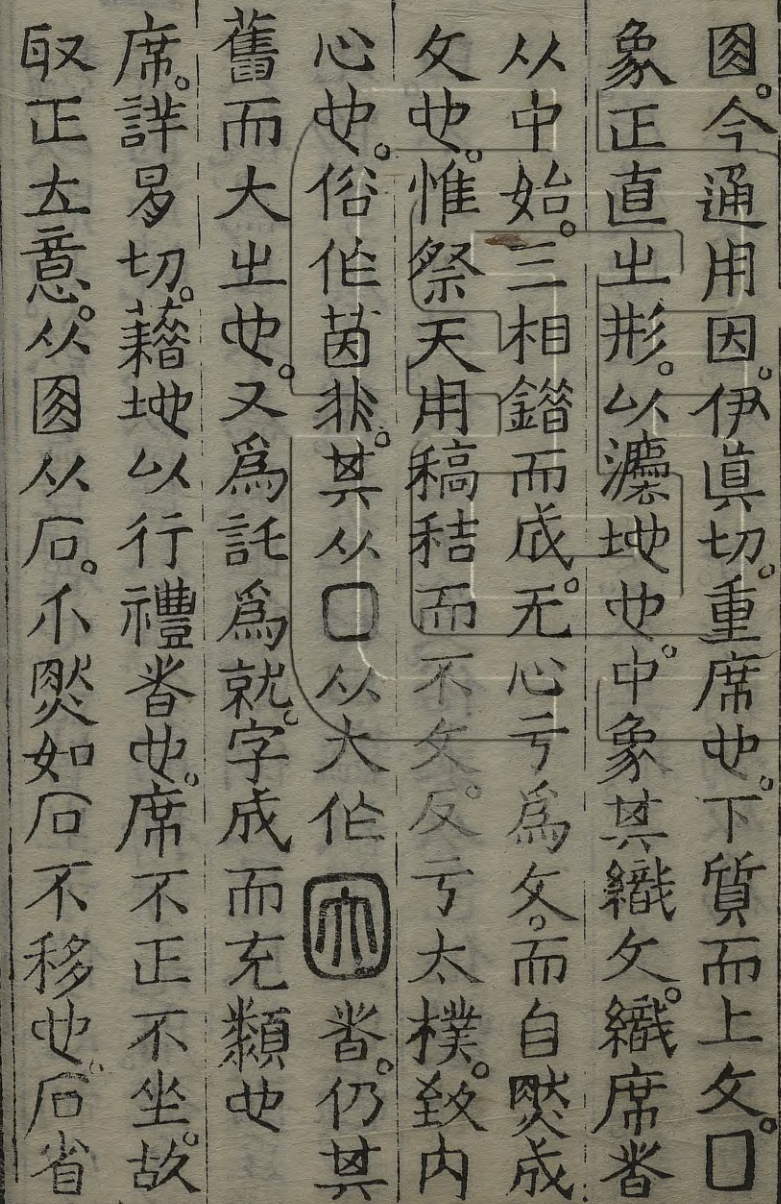 囪。今通用因。伊真切。重席也。下質而上文。囗
象正直之形。以灋地也。中象其織文。織席者
从中始。三相錯而成。无心亏為文。而自然成
文也。惟祭天用稿秸而不文。反亏太樸。致內
心也。俗作茵非。其从囗从大作因者。仍其
舊而大之也。又為託為就。字成而充類也
席。詳易切。藉地以行禮者也。席不正不坐。故
取正立意。从囪从石。不然如石不移也。石省